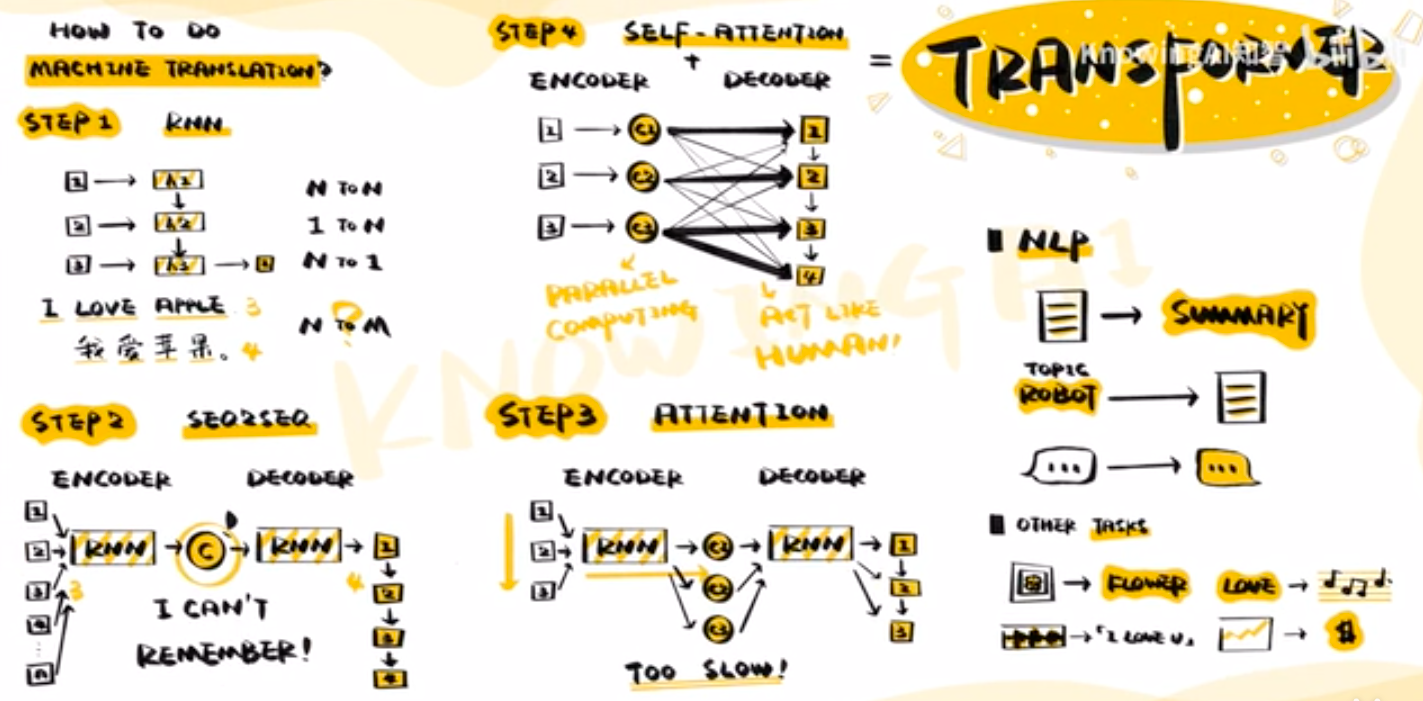 HOW TO DO
MACHINE TRANSLATION?
STEP 1 RNN
1 h1
2 h2
3 h3
N TO N
1 TO N
N TO 1
N TO M
?
I LOVE APPLE 3
我爱苹果。 4
STEP 2 SEQ2SEQ
ENCODER DECODER
1
2 RNN C RNN 1
3 3 4 2
4 3
n 4
I CAN'T
REMEMBER!
STEP 4 SELF-ATTENTION
+
ENCODER DECODER
1 C1 1
2 C2 2
3 C3 3
4
PARALLEL
COMPUTING
ACT LIKE
HUMAN!
STEP 3 ATTENTION
ENCODER DECODER
1
2 RNN C1 RNN 1
3 C2 2
C3 3
TOO SLOW!
= TRANSFORMER
KnowingAI知智 bilibili
NLP
SUMMARY
TOPIC
ROBOT
...
...
OTHER TASKS
FLOWER LOVE
「I LOVE U」 $
KNOWING AI